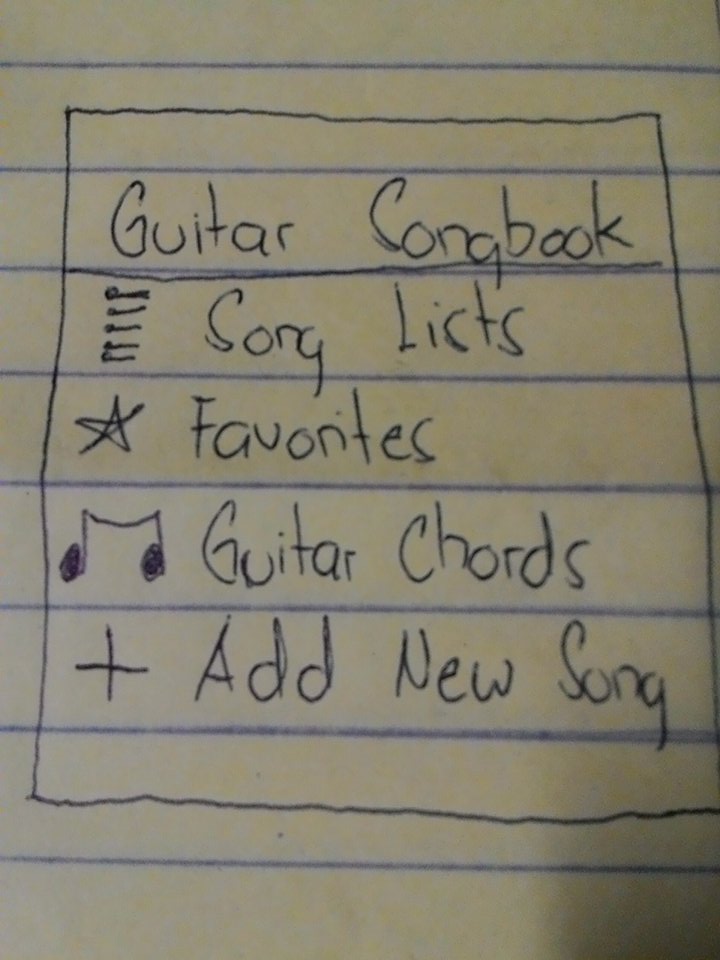 Guitar Songbook
Song Lists
Favorites
Guitar Chords
+ Add New Song